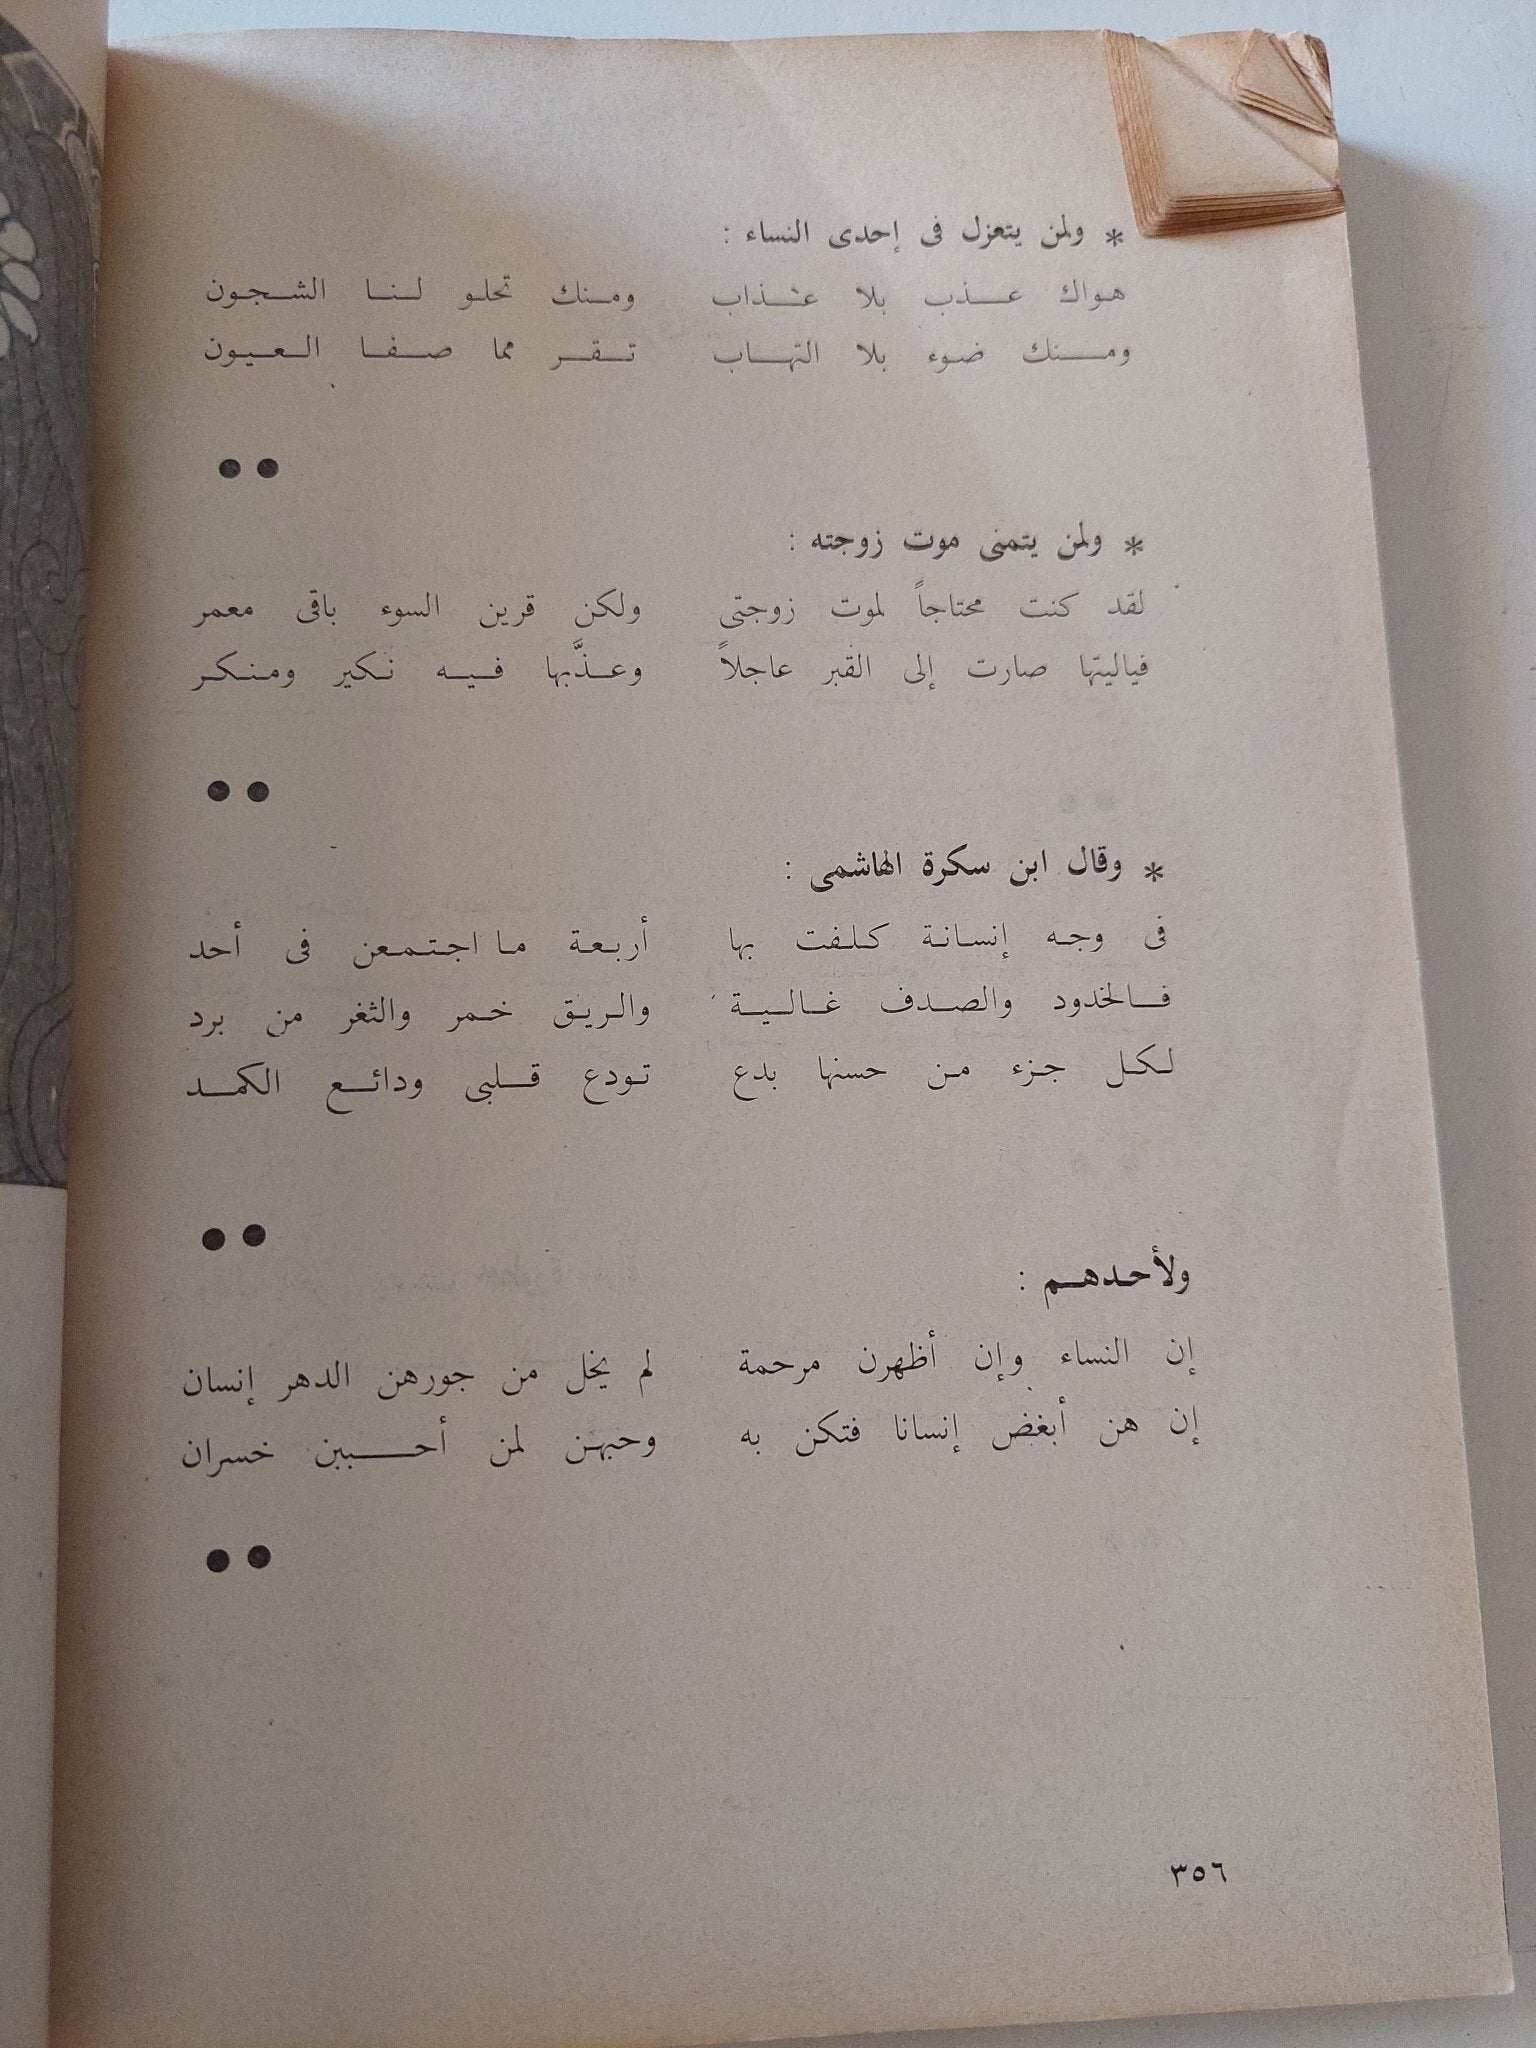 * ولمن يتعزل فى إحدى النساء :
هواك عذب بلا عذاب ومنك تحلو لنا الشجون
ومنك ضوء بلا التهاب تقر مما صفا العيون
* ولمن يتمنى موت زوجته :
لقد كنت محتاجاً لموت زوجتى ولكن قرين السوء باقى معمر
فياليتها صارت إلى القبر عاجلاً وعذَّبها فيه نكير ومنكر
* وقال ابن سكرة الهاشمى :
فى وجه إنسانة كلفت بها أربعة ما اجتمعن فى أحد
فالخدود والصدف غالية والريق خمر والثغر من برد
لكل جزء من حسنها بدع تودع قلبى ودائع الكمد
ولأحدهم :
إن النساء وإن أظهرن مرحمة لم يخل من جورهن الدهر إنسان
إن هن أبغض إنسانا فتكن به وحبهن لمن أحببن خسران
٣٥٦